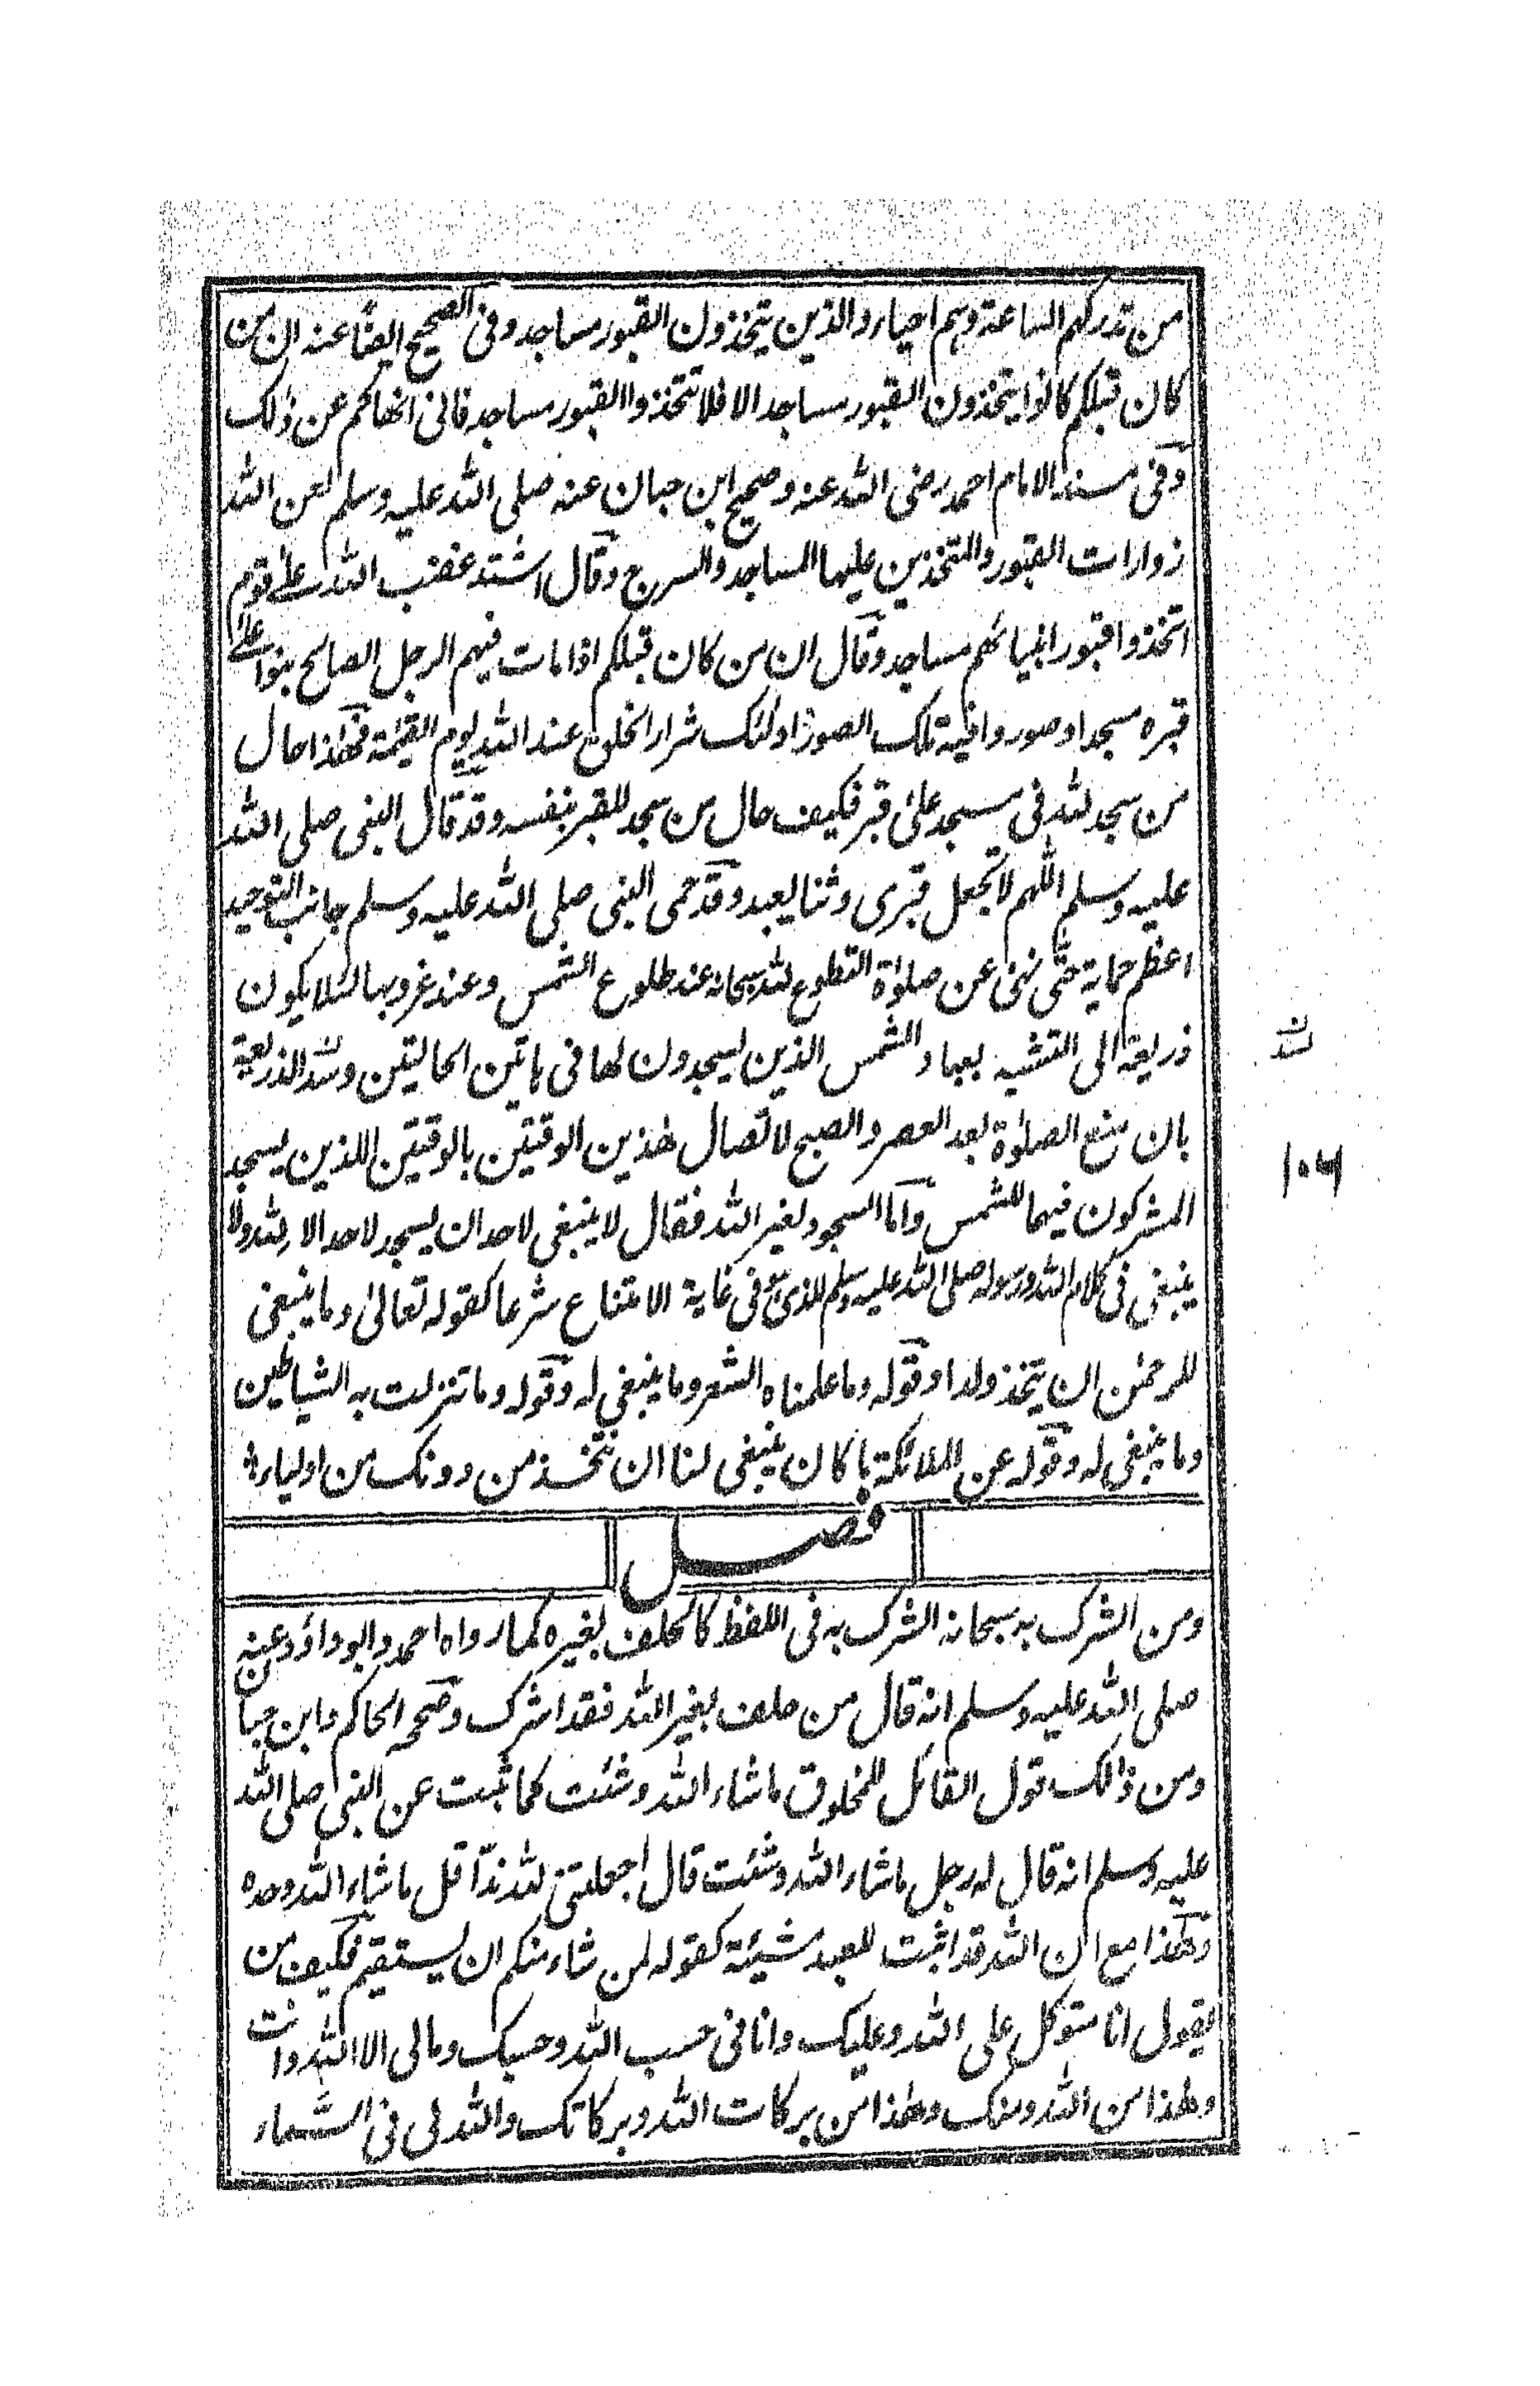 من تدركهم الساعة وهم احياء والذين يتخذون القبور مساجد وفى الصحيح ايضًا عنه ان من
كان قبلكم كانوا يتخذون القبور مساجد الا فلا تتخذوا القبور مساجد فانى انهاكم عن ذٰلك
وفى مسند الامام احمد رضى الله عنه وصحيح ابن حبان عنه صلى الله عليه وسلم لعن الله
زوارات القبور والمتخذين عليها المساجد والسرج وقال اشتد غضب الله علىٰ قوم
اتخذوا قبور انبيائهم مساجد وقال ان من كان قبلكم اذا مات فيهم الرجل الصالح بنوا علىٰ
قبره مسجدا وصوروا فيه تلك الصور اولئك شرار الخلق عند الله يوم القيٰمة فهٰذا حال
من سجد لله فى مسجد علىٰ قبر فكيف حال من سجد للقبر بنفسه وقد قال النبى صلى الله
عليه وسلم اللهم لا تجعل قبرى وثنا يعبد وقد حمى النبى صلى الله عليه وسلم جانب التوحيد
اعظم حماية حتّى نهى عن صلوٰة التطوع لله سبحانه عند طلوع الشمس وعند غروبها لئلا يكون
ذريعة الى التشبه بعباد الشمس الذين يسجدون لها فى هاتين الحالتين وسد الذريعة
بان منع الصلوٰة بعد العصر والصبح لاتصال هٰذين الوقتين بالوقتين اللذين يسجد
المشركون فيهما للشمس وآما السجود لغير الله فقال لا ينبغى لاحد ان يسجد لاحد الا لله ولا
ينبغى فى كلام الله ورسوله صلى الله عليه وسلم للذى هو فى غاية الامتناع شرعا كقوله تعالىٰ وما ينبغى
للرحمٰن ان يتخذ ولدا وقوله وما علمناه الشعر وما ينبغى له وقوله وما تنزلت به الشياطين
وما ينبغى له وقوله عن الملائكة ما كان ينبغى لنا ان نتخذ من دونك من اولياء
فصل
ومن الشرك به سبحانه الشرك به فى اللفظ كالحلف بغيره كما رواه احمد وابو داؤد عنه
صلى الله عليه وسلم انه قال من حلف بغير الله فقد اشرك وصححه الحاكم وابن حبان
ومن ذالك قول القائل للمخلوق ما شاء الله وشئت كما ثبت عن النبى صلى الله
عليه وسلم انه قال له رجل ما شاء الله وشئت قال اجعلتنى لله ندّا قل ما شاء الله وحده
وهٰذا مع ان الله قد اثبت للعبد مشيئة كقوله لمن شاء منكم ان يستقيم فكيف من
يقول انا متوكل على الله وعليك وانا فى حسب الله وحسبك ومالى الا الله وانت
وهٰذا من الله ومنك وهٰذا من بركات الله وبركاتك والله لى فى السّماء
ن
سد
۱۰۶